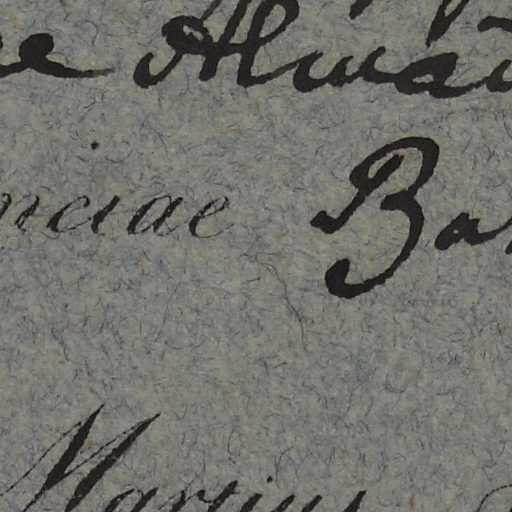 ae Almad
nciae Ba
Martius